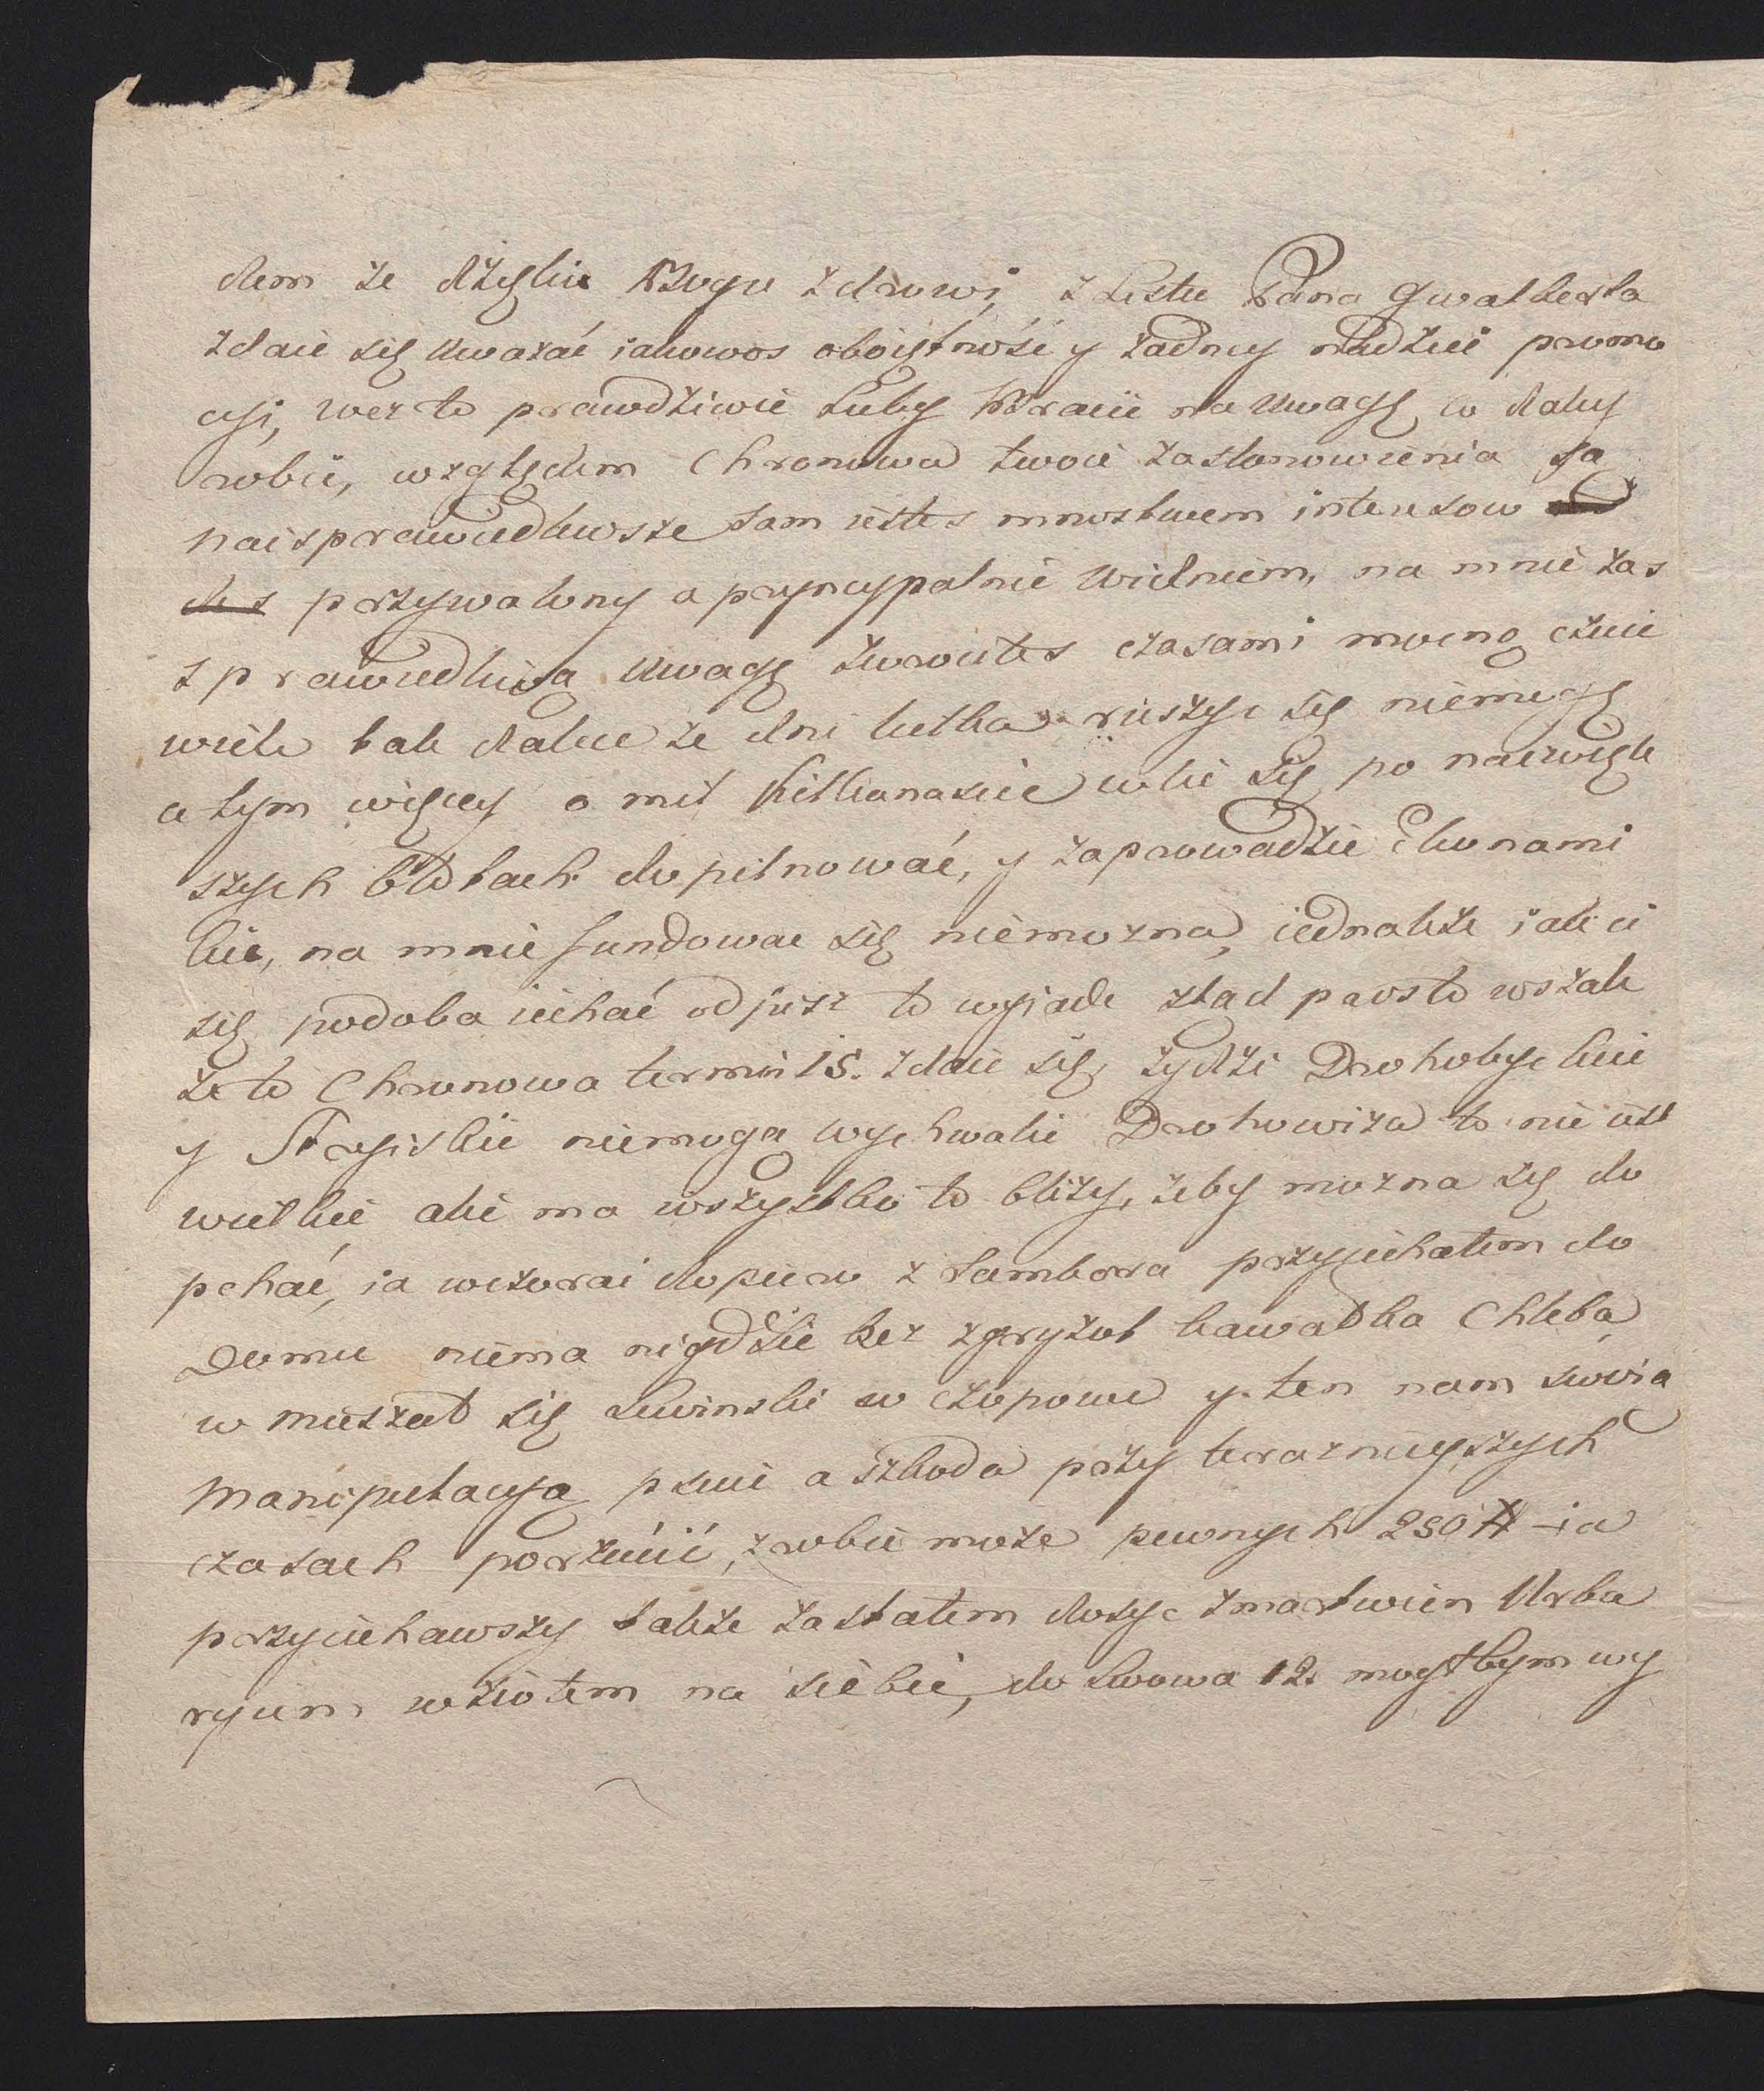 dem że dzięki Bogu zdrowi, z Listu Pana Gwalberta
zdaie się uważać iakowos oboiętność y żadney nadziei promo
cyi, weż to prawdziwie Luby Bracie na uwagę co daley
robić, względem Chronowa twoie zastanowienia są
naisprawiedliwsze sam iestes mnostwem interesow
przywalony a pryncypalnie Wielniem, na mnie zas
sprawiedliwą uwagę zwrociłes czasami mocno czuie
wiele tak dalece że dni kilka ruszyc się niemogę
a tym więcey o mil kilkanascie wlec się po naiwięk
szych błotach dopilnować, y zaprowadzić Ekonomi
kie, na mnie fundowac się niemożna, iednakże iak ci
się podoba iechać odpisz to wyiade ztąd prosto wszak
że to Chronowa termin 15. zdaie się, Żydzi Drohobyckie
y Stryiskie niemogą wychwalić Drohowiża to nie iest
wielkie ale ma wszystko to bliży, żeby można się do
pchać, ia wczorai dopiero z Sambora przyiechałem do
Domu niema nigdzie bez zgryzot kawałka Chleba
w mieszał się Lewinski w Czopowe y ten nam swoią
Manipulacyą psuie a szkoda przy teraznieyszych
czasach porzucić, zrobic może pewnych 250 # – ia
przyiechawszy także zastałem dosyc zmartwien Urba
ryum wziołem na siebie, do Lwowa 12. mogłbym wy